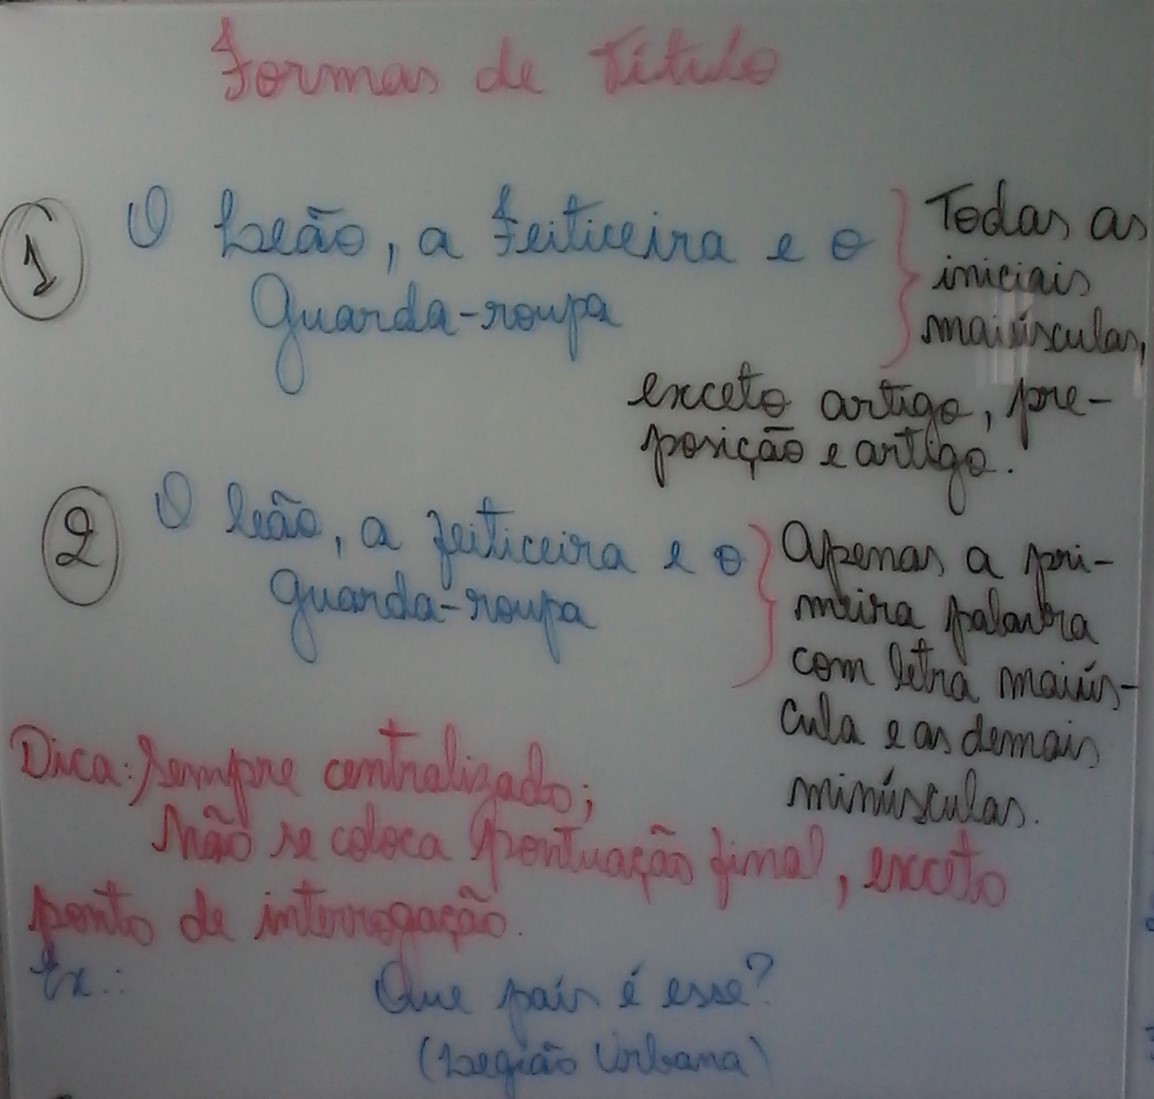 Formas de Título
1 O Leão, a Feiticeira e o
Guarda-roupa
Todas as
iniciais
maiúsculas,
exceto artigo, pre-
posição e artigo.
2 O leão, a feiticeira e o
guarda-roupa
Apenas a pri-
meira palavra
com letra maiús-
cula e as demais
minúsculas.
Dica: Sempre centralizado;
Não se coloca pontuação final, exceto
ponto de interrogação.
Ex.:
Que país é esse?
(Legião Urbana)